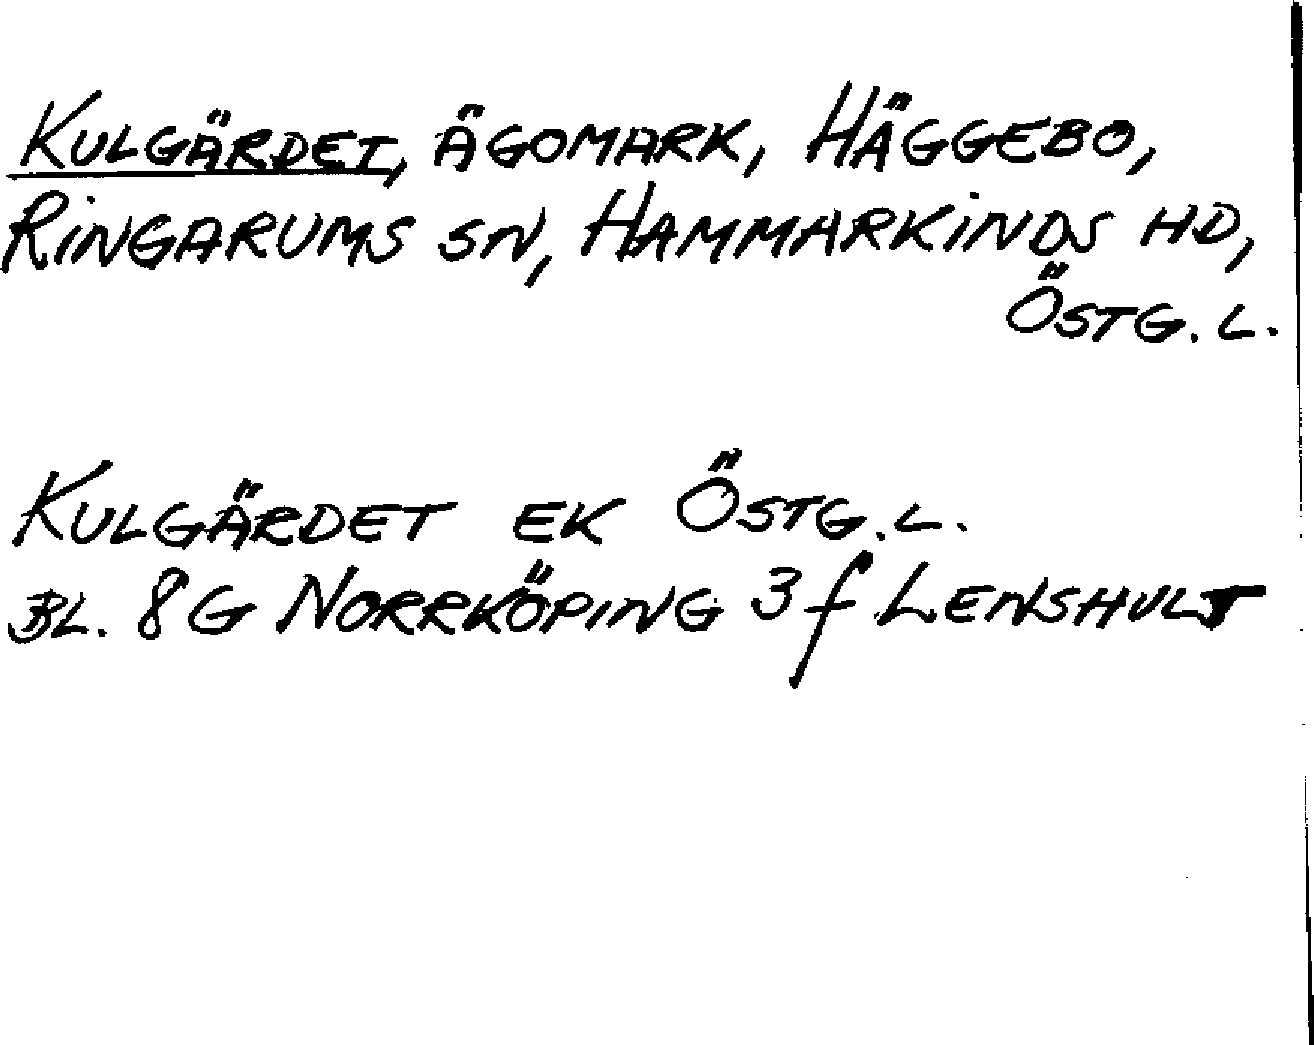 KULGÄRDET, ÄGOMARK, HÄGGEBO,
RINGARUMS SN, HAMMARKINDS HD,
ÖSTG. L.
KULGÄRDET EK ÖSTG. L.
BL. 8G NORRKÖPING 3f LENSHULT